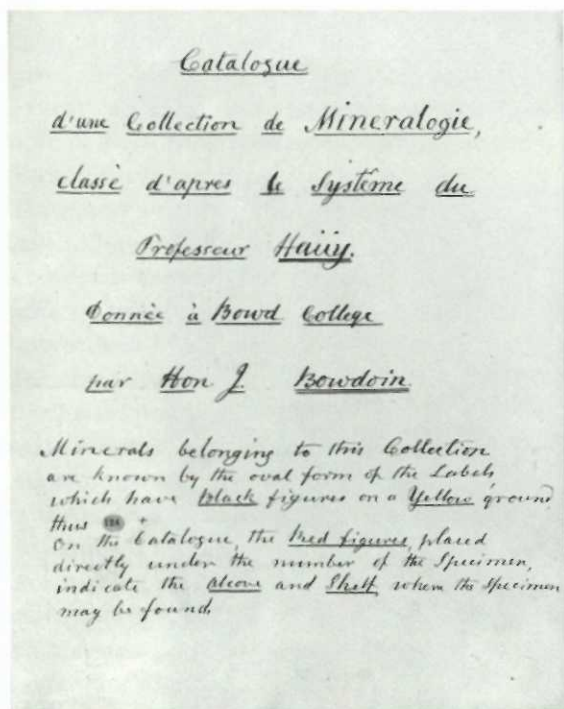 Catalogue
d'une Collection de Mineralogie,
classè d'apres le Système du
Professeur Haüy.
Donnèe à Bowd College
par Hon J. Bowdoin
Minerals belonging to this Collection
are known by the oval form of the Labels,
which have Black figures on a Yellow ground
thus +
On the Catalogue, the Red figures, placed
directly under the number of the Specimen,
indicate the alcove and Shelf, where the Specimen
may be found.